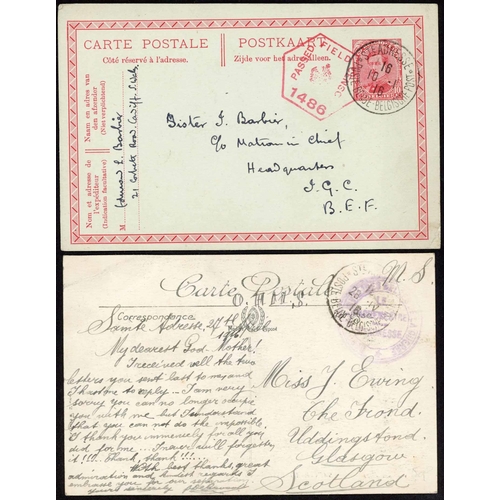 CARTE POSTALE
POSTKAART
Côté réservé à l'adresse.
Zijde voor het adres alleen.
PASSED FIELD
1486
STE ADRESSE
16
10
16
POSTE BELGE-BELGISCHE POST
Naam en adres van
den afzender
(Niet verplichtend)
Nom et adresse de
l'expéditeur
(Indication facultative)
Edmond L. Barbier
21 Corbett Road, Cardiff. S. Wales.
Sister I. Barbier,
c/o Matron in Chief
Headquarters
I. G. C.
B. E. F.
Carte Postale
M. S
O.H.M.S.
Correspondance
Sainte Adresse 27th
1916
My dearest God-Mother!
I received well the two
letters you sent last to me and
I haste me to reply... I am very
sorry you can no longer
you with me but I understand
that you can not do the impossible.
I thank you immensely for all you
did for me... I never will forget
it!!! Thank, thank!!!...
With best thanks, great
admiration and kindest regards I
embrace you
yours sincerely
Miss J. Ewing
The Frond
Uddingstond
Glasgow
Scotland